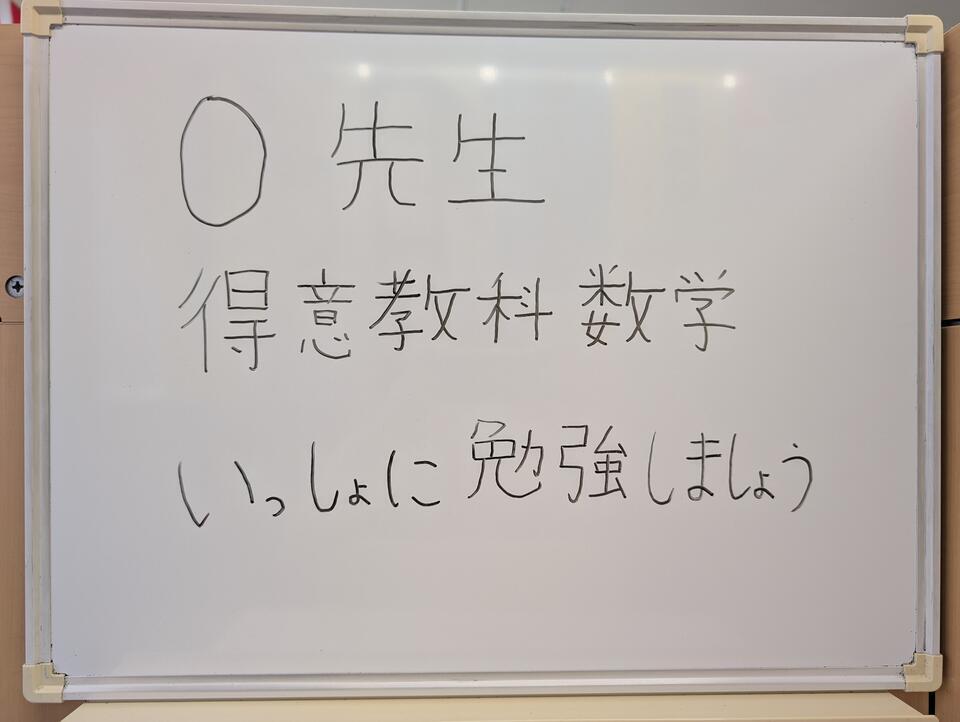 〇 先生
得意教科 数学
いっしょに勉強しましょう